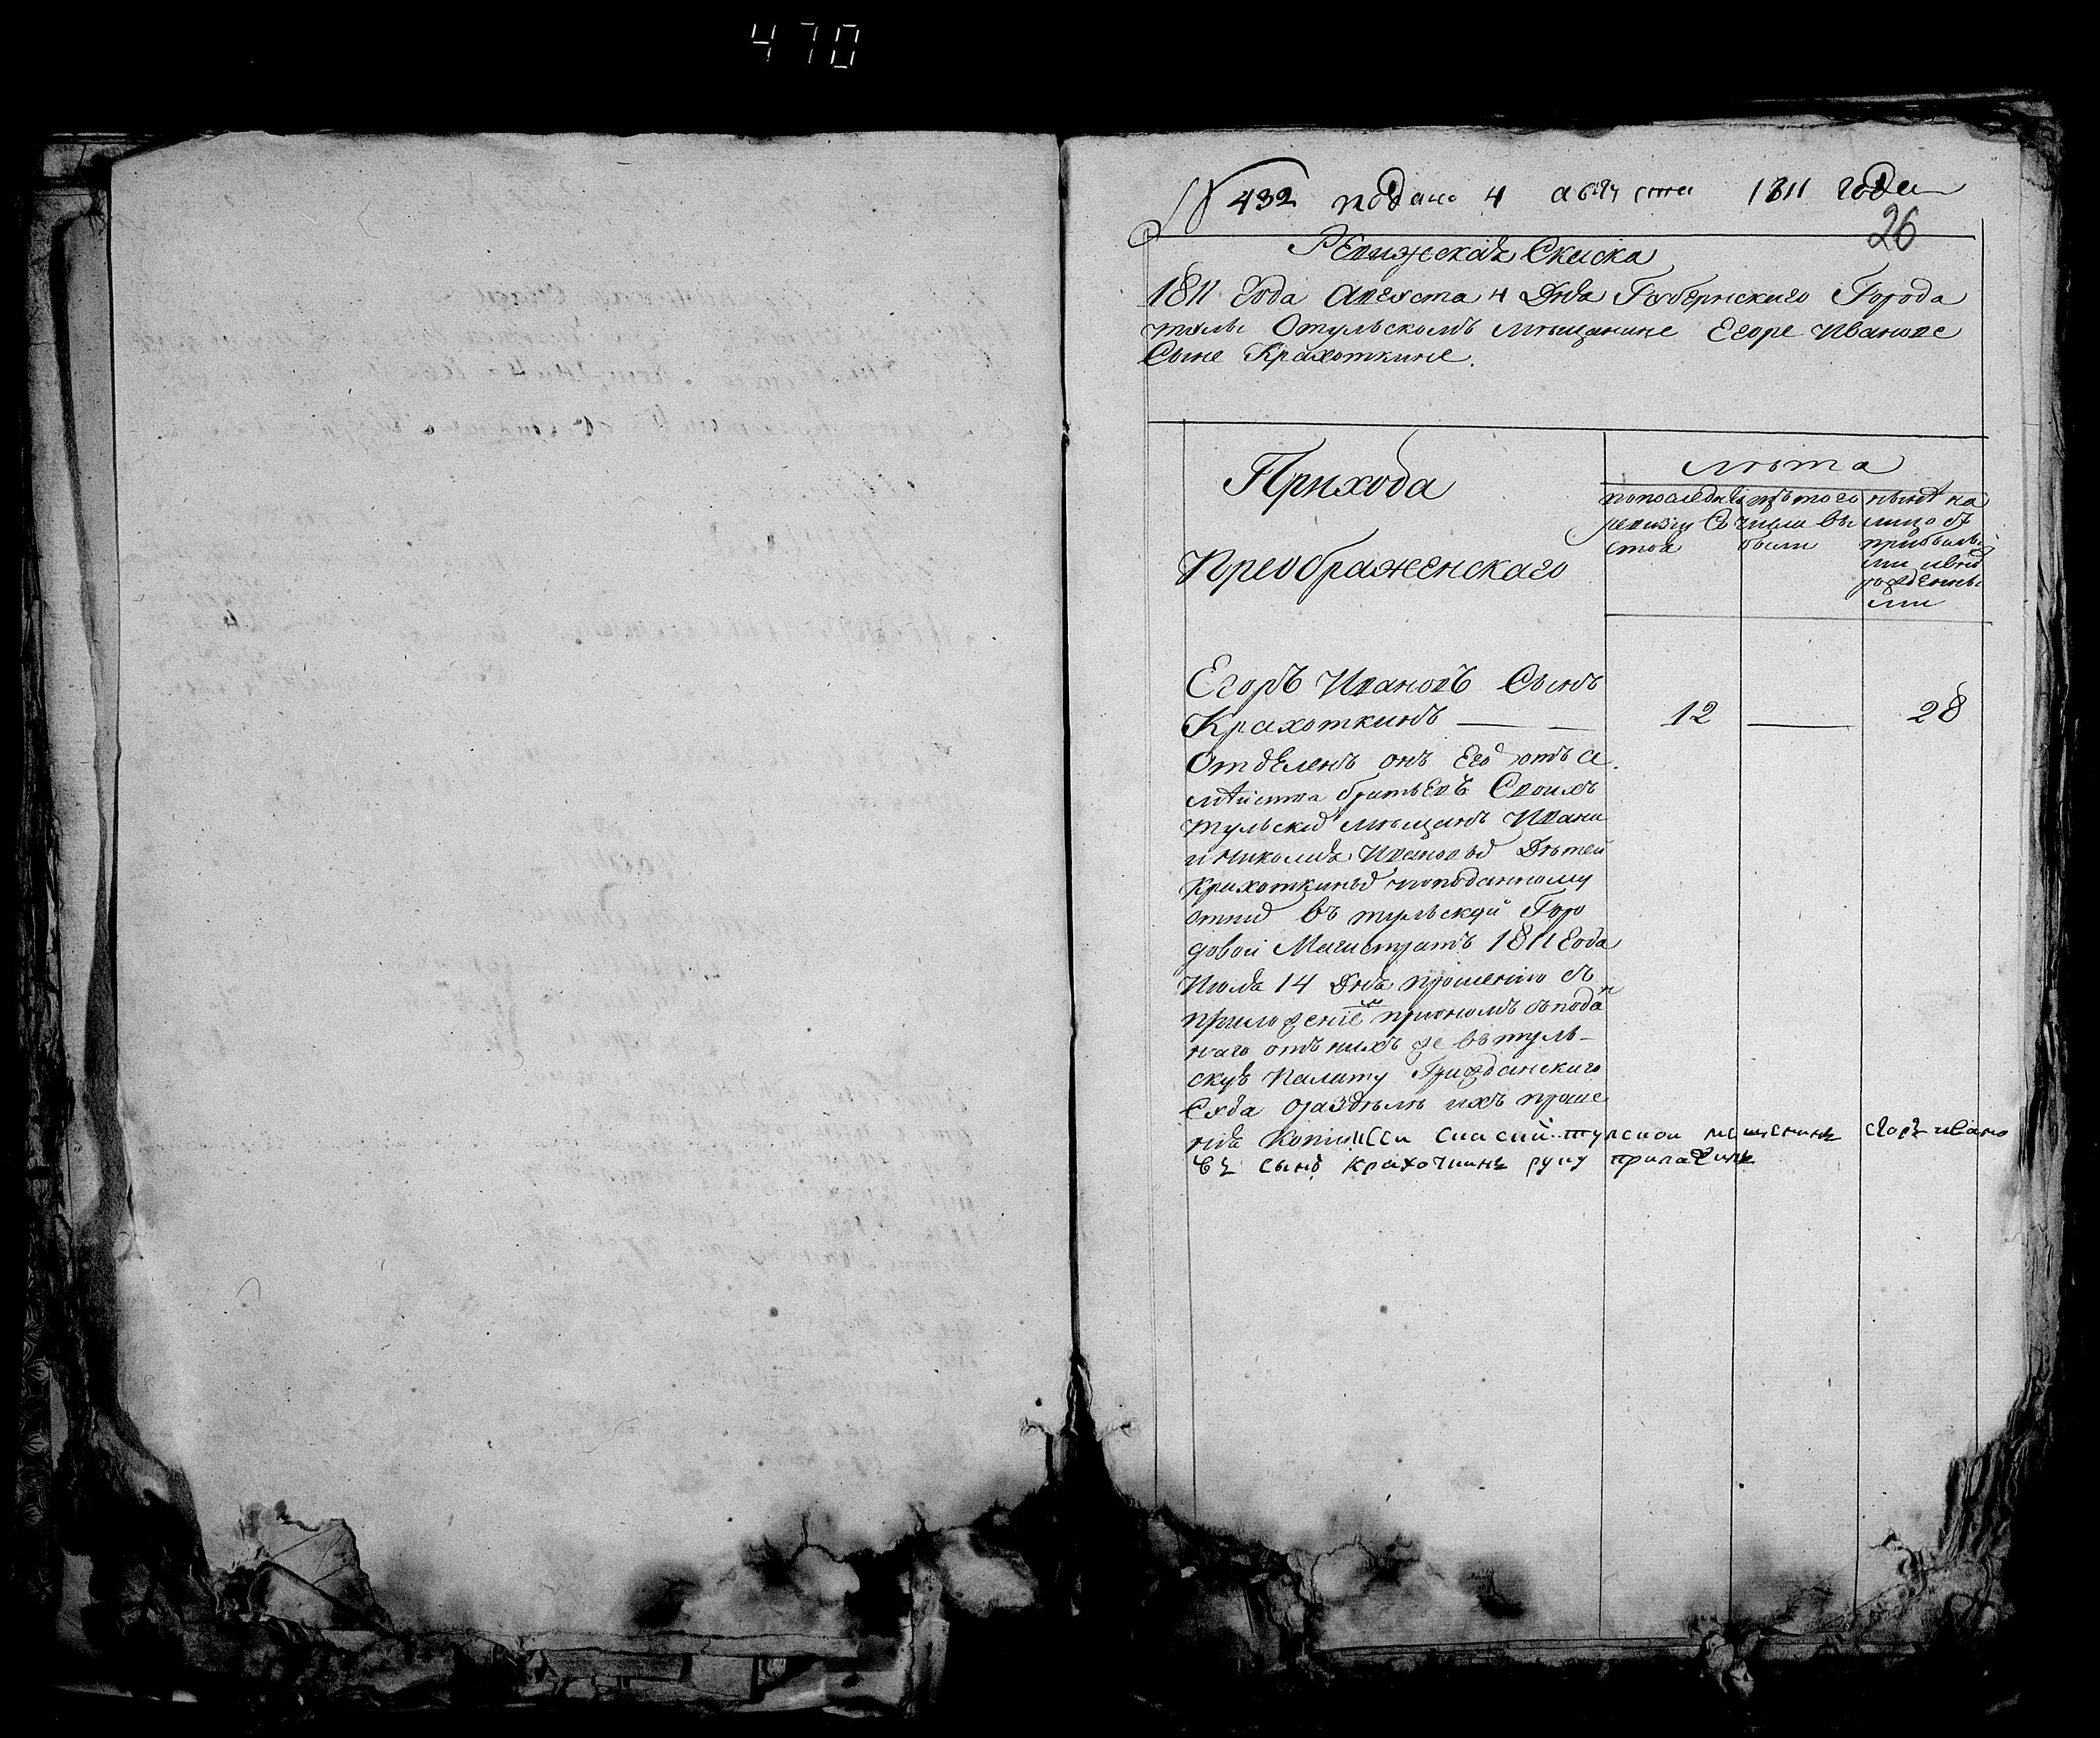 470
№ 432 подано 4 августа 1811 года
26
Ревижскаѣ Скаска
1811 Года Августа 4 Дня Губернскаго Города
тулы Отульскомъ мѣщанине Егоре Иванове
Сыне Крахоткине.
Прихода
Преображенскаго
лѣта
попоследней
ревизіи Со
стоя
изътого
числа вы
были
нынѣ на
лицо съ
прибылы
ми ивнов
рожденны
ми
Егоръ Ивановъ Сынъ
Крахоткинъ — — 12 — 28
Отдѣленъ онъ Егоръ отъ се
мѣйства братьевъ Своихъ
тульских мѣщанъ Ивана
и николая Ивановых Дѣтей
Крахоткиных поподанному
отних въ тульской Горо
довой Магистратъ 1811 Года
Июля 14 Дня прошенію съ
приложеніемъ приономъ съподан
наго отъ нихъ же втуль-
скую Палату Гражданскаго
Суда оразделѣ ихъ проше
нія Копии Ксей скаски тулской мещенинъ егоръ ивано
въ сынъ крахоткинъ руку приложилъ